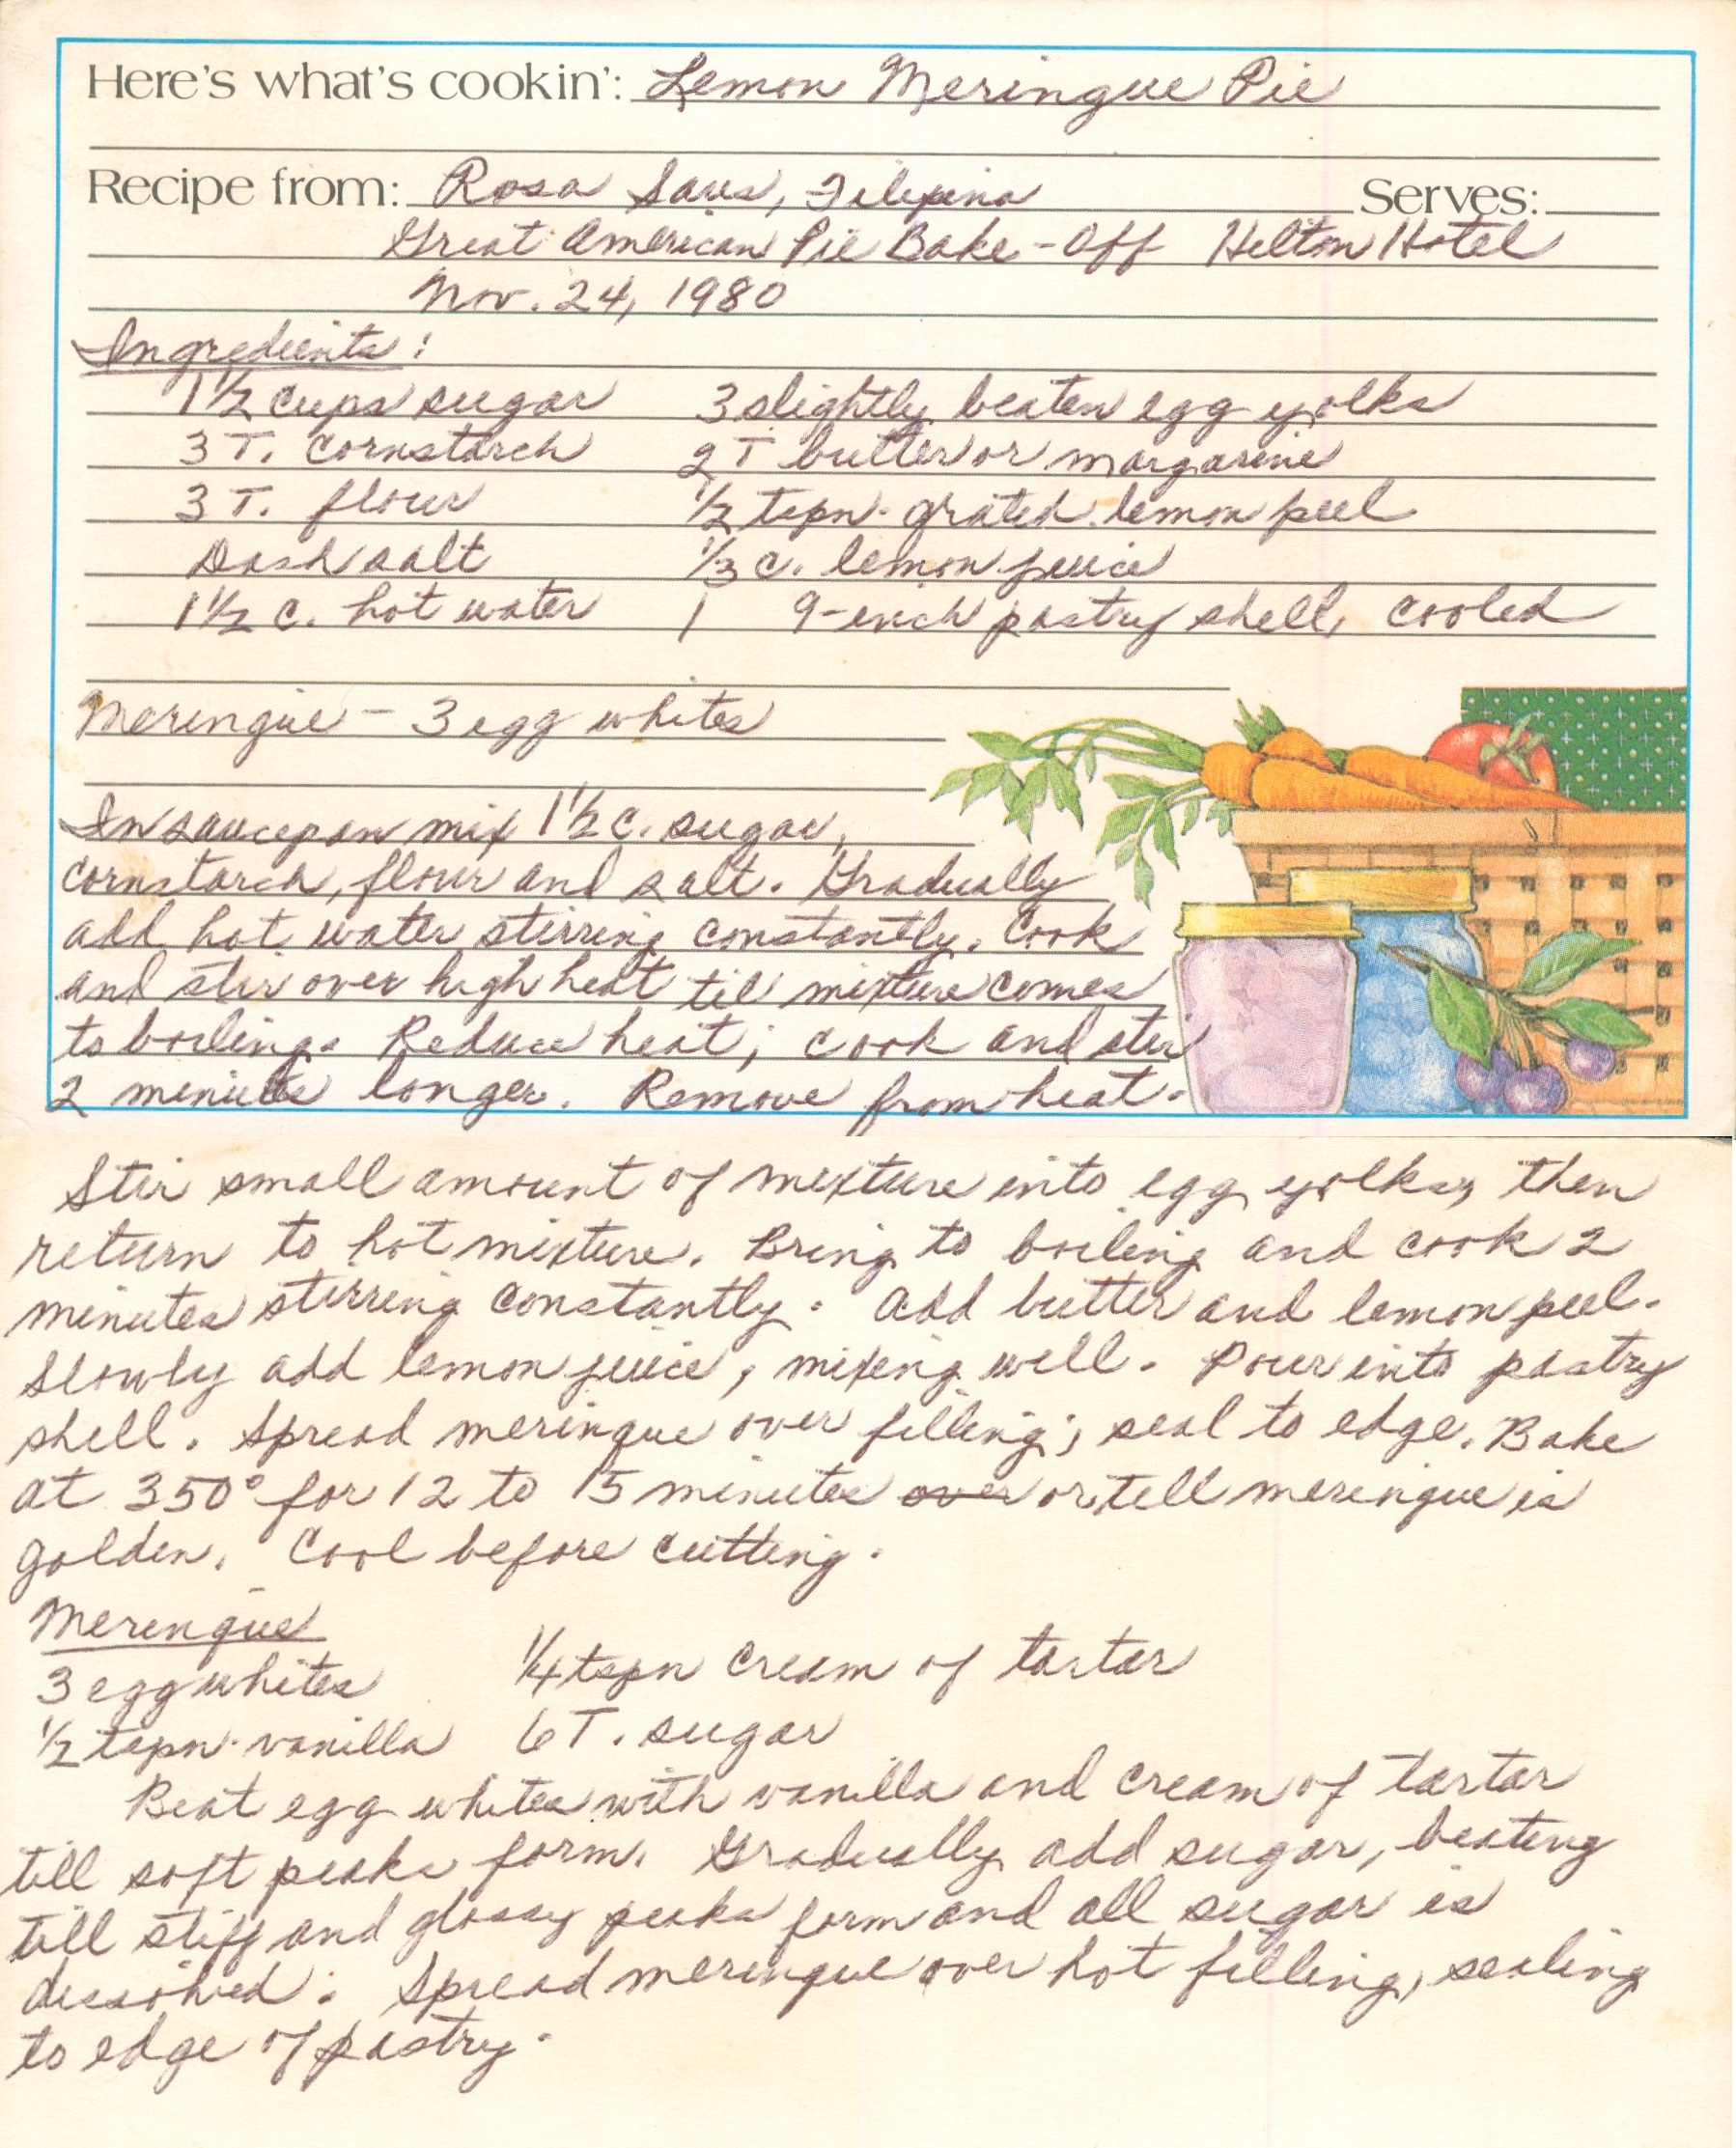 Here's what's cookin': Lemon Meringue Pie
Recipe from: Rosa Saus, Filipina Serves:
Great American Pie Bake-Off Hilton Hotel
Nov. 24, 1980
Ingredients:
1 1/2 cups sugar 3 slightly beaten egg yolks
3 T. cornstarch 2 T butter or margarine
3 T. flour 1/2 tspn. grated lemon peel
Dash salt 1/3 c. lemon juice
1 1/2 c. hot water 1 9-inch pastry shell, cooled
Meringue - 3 egg whites
In saucepan mix 1 1/2 c. sugar,
cornstarch, flour and salt. Gradually
add hot water stirring constantly. Cook
and stir over high heat til mixture comes
to boiling. Reduce heat; cook and stir
2 minutes longer. Remove from heat.
Stir small amount of mixture into egg yolks, then
return to hot mixture. Bring to boiling and cook 2
minutes stirring constantly. Add butter and lemon peel.
Slowly add lemon juice, mixing well. Pour into pastry
shell. Spread meringue over filling; seal to edge. Bake
at 350° for 12 to 15 minutes over or till meringue is
golden. Cool before cutting.
Meringue
3 egg whites 1/4 tspn cream of tartar
1/2 tspn. vanilla 6 T. sugar
Beat egg whites with vanilla and cream of tartar
till soft peaks form. Gradually add sugar, beating
till stiff and glossy peaks form and all sugar is
dissolved. Spread meringue over hot filling, sealing
to edge of pastry.